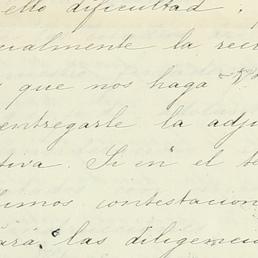 ello dificultad.
cialmente la reci
que nos haga
entregarle la adju
tiva. Si en el te
bimos contestacion
ará las diligencia